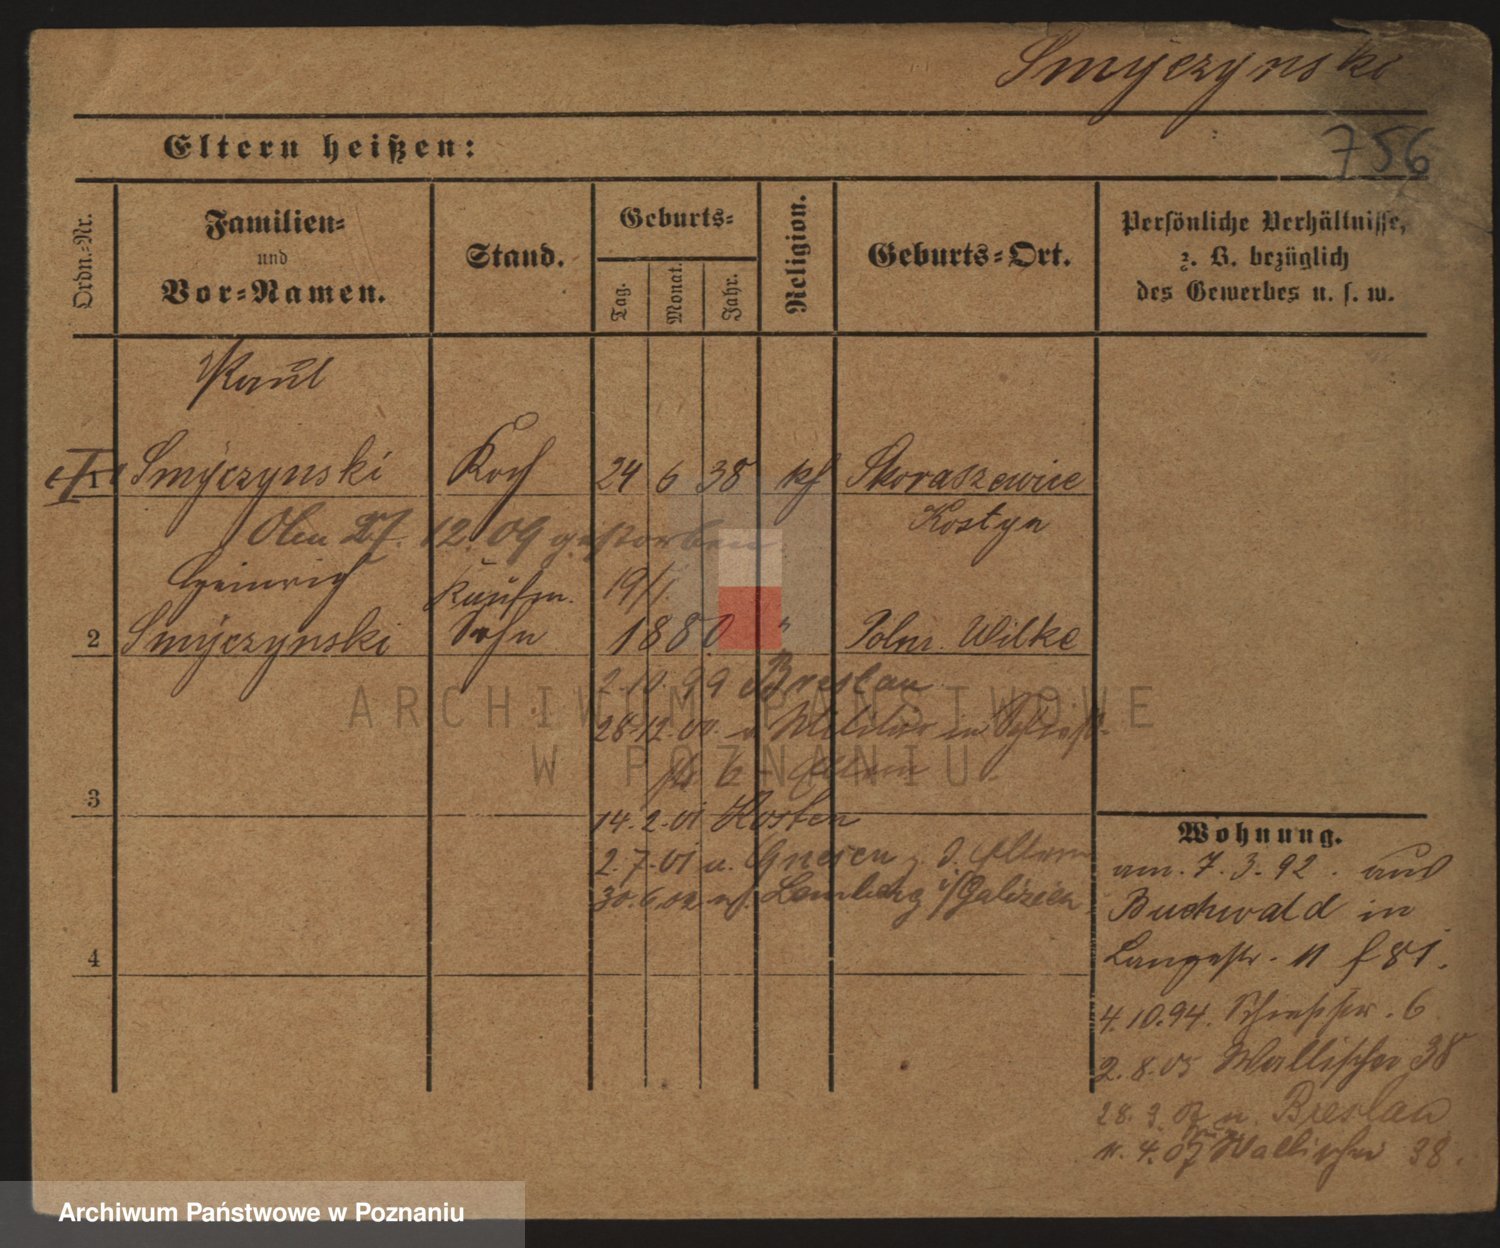 Smyczynski
756
Eltern heißen:
Ordn.-Nr.
Familien-
und
Vor-Namen.
Stand.
Geburts-
Tag.
Monat.
Jahr.
Religion.
Geburts-Ort.
Persönliche Verhältnisse,
z. B. bezüglich
des Gewerbes u. s. w.
Paul
1 Smyczynski Koch 24 6 38 kth Skoraszewice
Kostyn
12. 09 gestorben
Heinrich Kaufm. 19/1
2 Smyczynski Sohn 1880 " Poln. Wilke
2.10.99 Breslau
28.12.00. Militär in
b Eltern
3
14.2.01 Kosten
2.7.01 u. Gnesen z. d. Eltern
30.6.02 n. Lemberg i/Galizien
4
Wohnung.
am. 7.3.92. aus
Buchwald in
Langestr. 11 f 81.
4.10.94. 6
2.8.05 Wallischei 38
28.9. n. Breslau
4.07 Wallischei 38.
ARCHIWUM PAŃSTWOWE
W POZNANIU
Archiwum Państwowe w Poznaniu